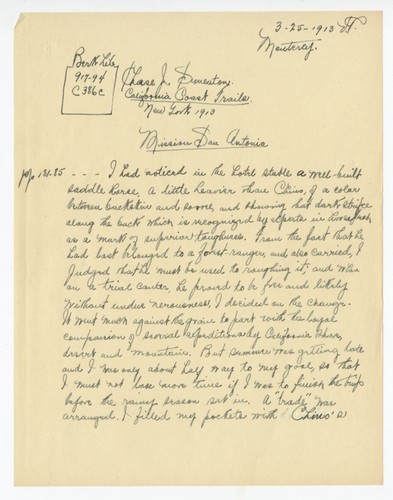 3-25-1913
Monterey.
Berk Lib.
917.94
C386c
Chase J. Smeaton.
California Coast Trails.
New York 1913
Mission San Antonio
pp 181.85 - - - I had noticed in the hotel stable a well-built
saddle horse, a little heavier than Chino, of a color
between buckskin and sorrel, and showing that dark stripe
along the back which is recognized by experts in horseflesh
as a mark of superior toughness. From the fact that he
had last belonged to a forest-ranger, and also carried, I
judged that he must be used to roughing it; and when
on a trial canter, he proved to be free and lively
without undue nervousness, I decided on the change.
It went much against the grain to part with the loyal
companion of several expeditions by California shore,
desert and mountain. But summer was getting late
and I was only about half way to my goal, so that
I must not lose more time if I was to finish the trip
before the rainy season set in. A "trade" was
arranged. I filled my pockets with Chino's